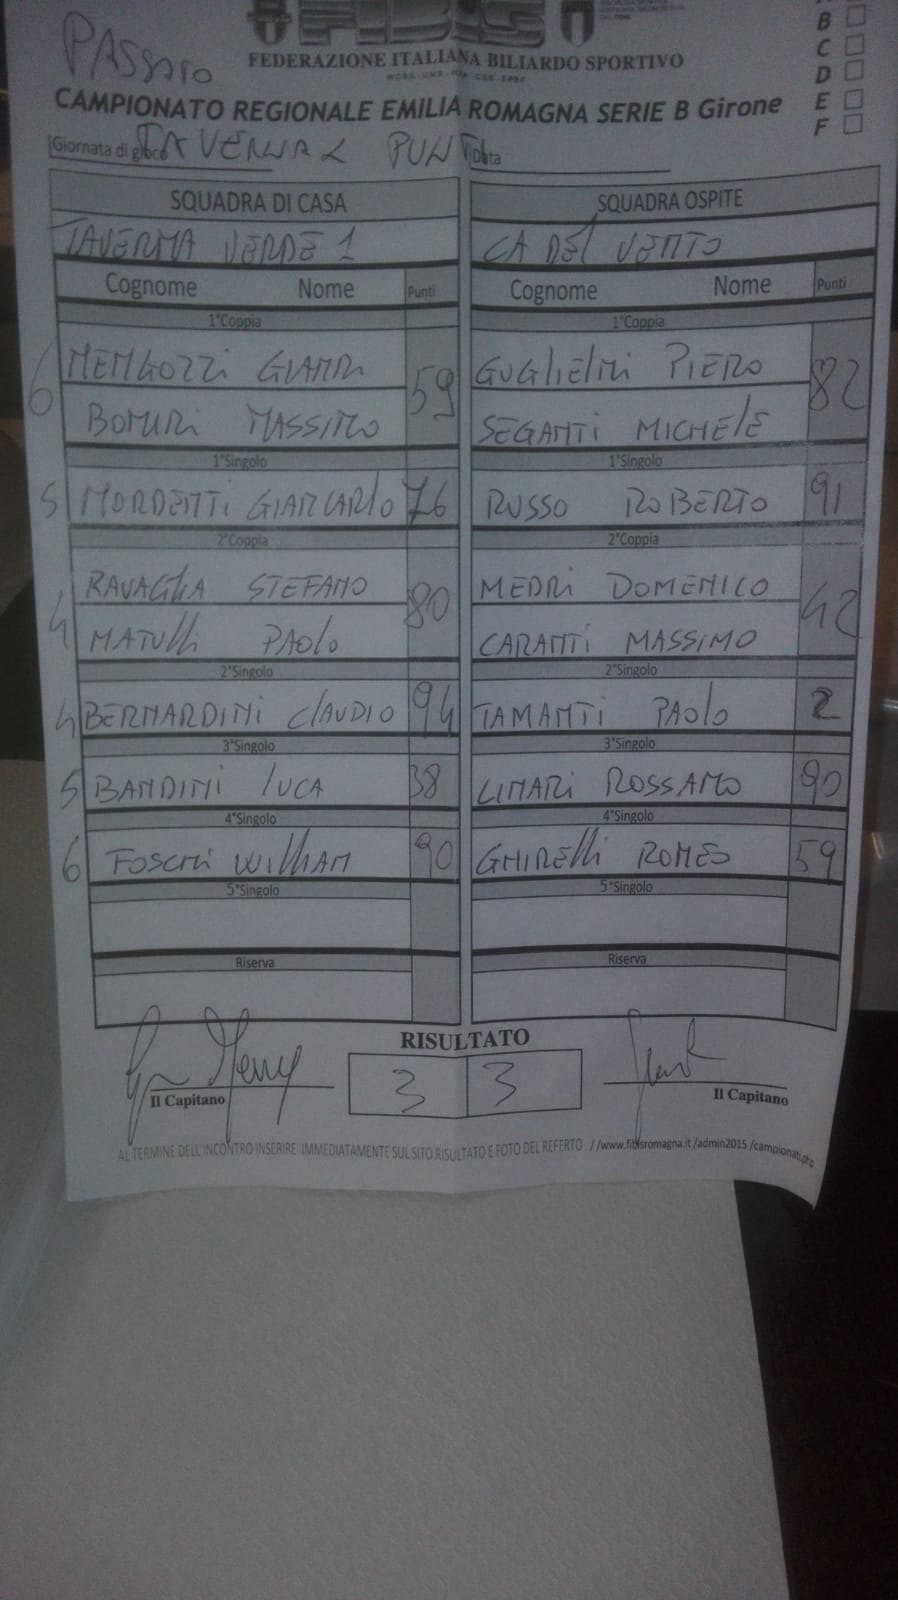 FIBIS
FEDERAZIONE ITALIANA BILIARDO SPORTIVO
PASSATO
CAMPIONATO REGIONALE EMILIA ROMAGNA SERIE B Girone
B
C
D
E
F
Giornata di gioco TAVERNA 2 PUNTI Data
SQUADRA DI CASA SQUADRA OSPITE
TAVERNA VERDE 1 CA DEL VENTO
Cognome Nome Punti Cognome Nome Punti
1°Coppia 1°Coppia
6 MENGOZZI GIANNI 59 GUGLIELMI PIERO 82
BONURI MASSIMO SEGANTI MICHELE
1°Singolo 1°Singolo
5 MORDENTI GIANCARLO 76 RUSSO ROBERTO 91
2°Coppia 2°Coppia
4 RAVAGLIA STEFANO 80 MEDRI DOMENICO 42
MATULLI PAOLO CARANTI MASSIMO
2°Singolo 2°Singolo
4 BERNARDINI CLAUDIO 94 TAMANTI PAOLO 2
3°Singolo 3°Singolo
5 BANDINI LUCA 38 LINARI ROSSANO 90
4°Singolo 4°Singolo
6 FOSCHI WILLIAM 90 GHIRELLI ROMEO 59
5°Singolo 5°Singolo
Riserva Riserva
RISULTATO
3 3
Il Capitano Il Capitano
AL TERMINE DELL'INCONTRO INSERIRE IMMEDIATAMENTE SUL SITO RISULTATO E FOTO DEL REFERTO //www.fibisromagna.it/admin2015/campionati.php